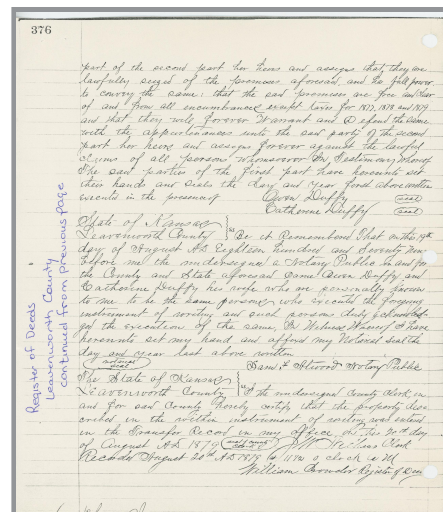 376
part of the second part her heirs and assigns that they are
lawfully seized of the premises aforesaid, and has full power
to convey the same; that the said premises are free and clear
of and from all encumbrances except taxes for 1877, 1878 and 1879
and that they will forever Warrant and Defend the same
with the appurtenances unto the said party of the second
part her heirs and assigns forever against the lawful
claims of all persons whomsoever In Testimony whereof
The said parties of the first part have hereunto set
their hands and seals the day and year first above written
executed in the presence of Owen Duffy (seal)
Catherine Duffy (seal)
State of Kansas
Leavenworth County "Be it Remembered That on this 19th
day of August A.D. Eighteen hundred and seventy nine
before me the undersigned a Notary Public in and for
the County and State aforesaid came Owen Duffy and
Catharine Duffy his wife who are personally known
to me to be the same persons who executed the foregoing
instrument of writing and such persons duly acknowled-
ged the execution of the same, In Witness Whereof I have
hereunto set my hand and affixed my Notarial seal the
day and year last above written
(notarial seal) Atwood Notary Public
The State of Kansas
Leavenworth County "I the undersigned County Clerk in
and for said County hereby certify that the property des-
cribed in the written instrument of writing was entered
in the Transfer Record in my office, on this 20th day
of August A.D. 1879 Clerk
Recorded August 20th A.D. 1879 at o'clock A.M
William Crowder Register of Deeds
Register of Deeds
Leavenworth County
continued from previous page